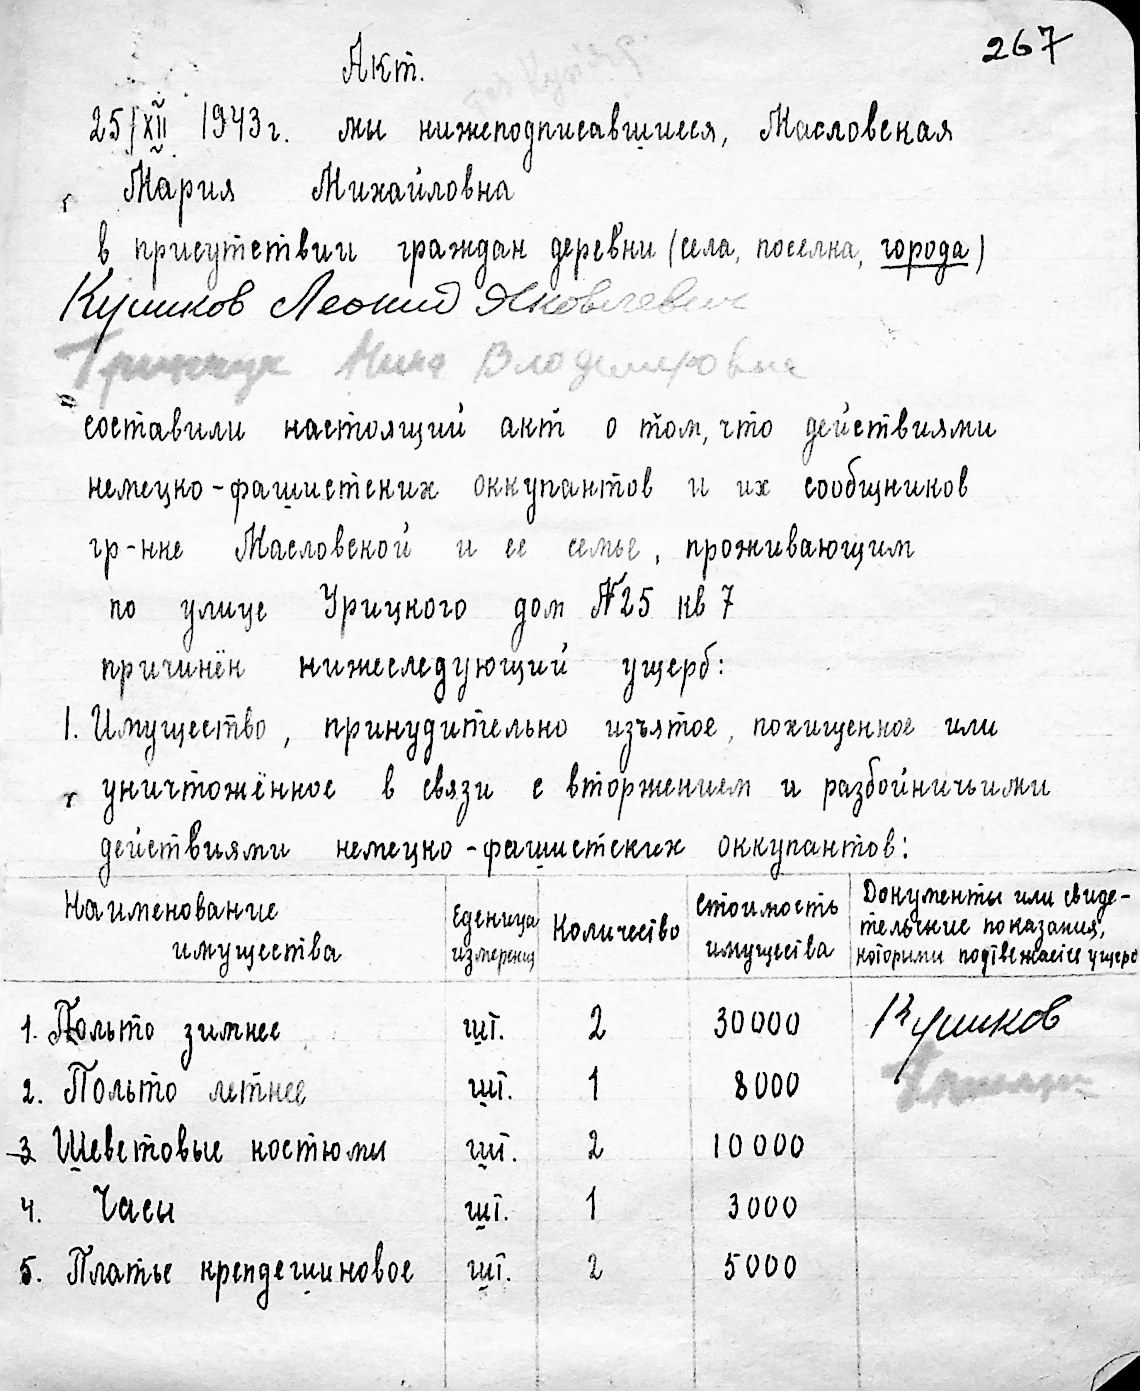 267
Акт.
25/XII 1943г. мы нижеподписавшиеся, Масловская
Мария Михайловна
в присутствии граждан деревни (села, поселка, города)
Кушков Леонид Яковлевич
Нина Владимировна
составили настоящий акт о том, что действиями
немецко-фашистских оккупантов и их сообщников
гр-нке Масловской и ее семье, проживающим
по улице Урицкого дом №25 кв 7
причинён нижеследующий ущерб:
1. Имущество, принудительно изъятое, похищенное или
уничтожённое в связи с вторжением и разбойничьими
действиями немецко-фашистских оккупантов:
Наименование имущества | Еденица измерения | Количество | Стоимость имущества | Документы или свиде-тельские показания, которыми подтвежается ущерб
1. Польто зимнее шт. 2 30000 Кушков
2. Польто летнее шт. 1 8000
3 Шеветовые костюмы шт. 2 10000
4. Часы шт. 1 3000
5. Платье крепдешиновое шт. 2 5000